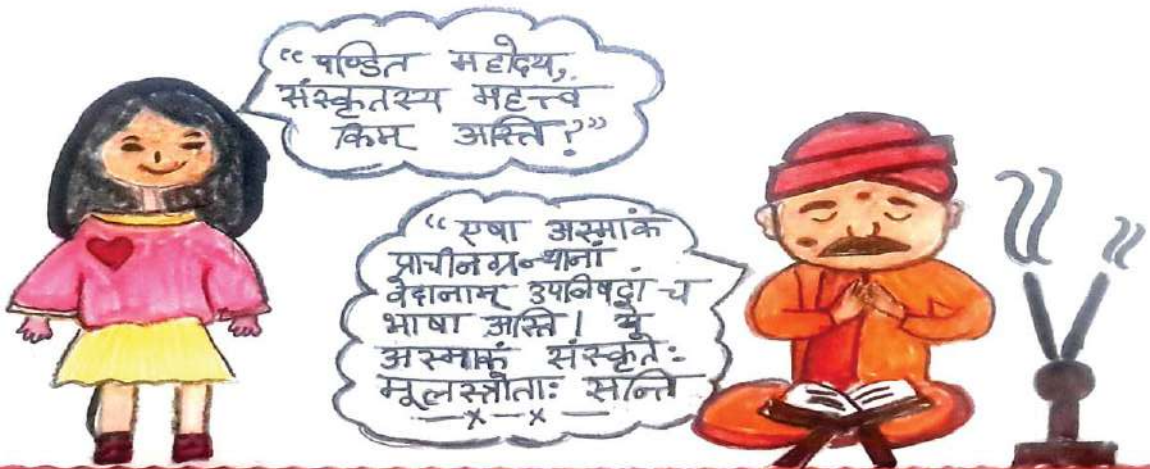 “पण्डित महोदय,
संस्कृतस्य महत्त्वं
किम् अस्ति?”
“एषा अस्माकं
प्राचीनग्रन्थानां
वेदानाम् उपनिषदां च
भाषा अस्ति। ये
अस्माकं संस्कृतेः
मूलस्त्रोताः सन्ति
—x—x—